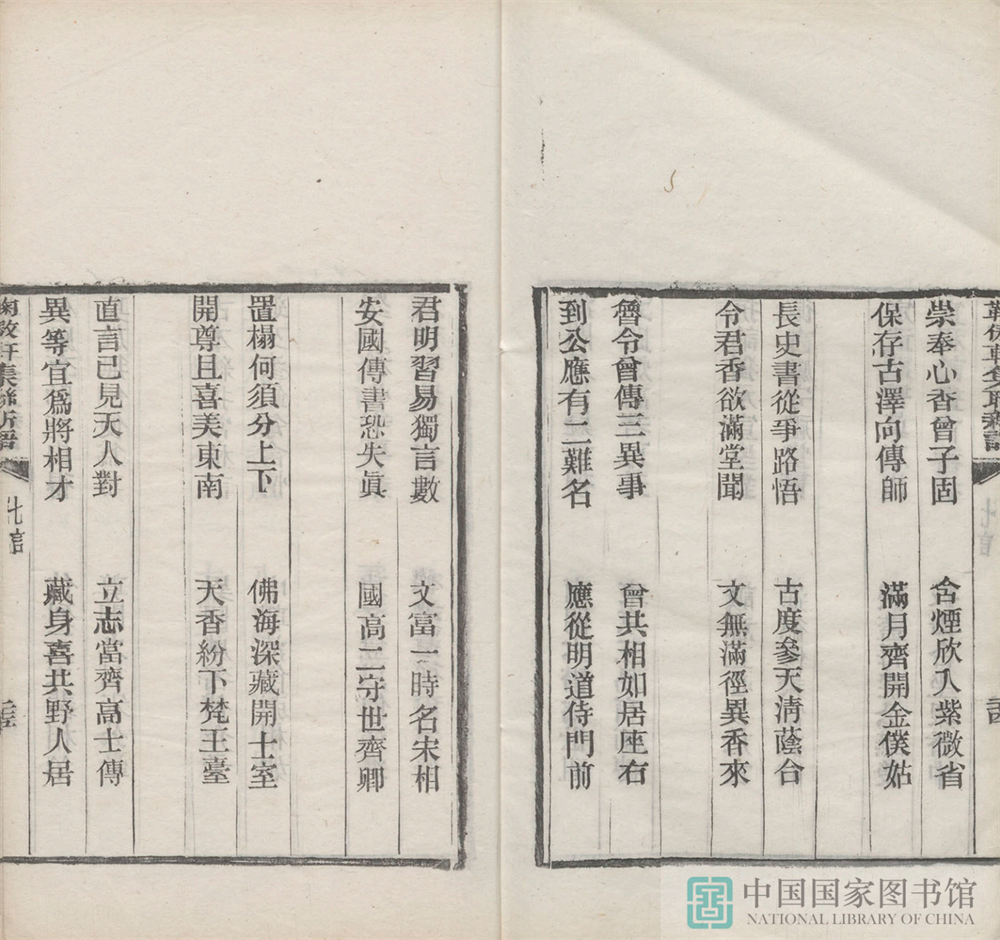 崇奉心香曾子固
含煙欣入紫微省
保存古澤向傳師
滿月齊開金僕姑
長史書從爭路悟
古度參天清蔭合
令君香欲滿堂聞
文無滿徑異香來
魯令曾傳三異事
曾共相如居座右
到公應有二難名
應從明道侍門前
君明習易獨言數
文富一時名宋相
安國傳書恐失眞
國高二守世齊卿
置榻何須分上下
佛海深藏開士室
開尊且喜美東南
天香紛下梵王臺
直言已見天人對
立志當齊高士傳
異等宜爲將相才
藏身喜共野人居
中国国家图书馆
NATIONAL LIBRARY OF CHINA